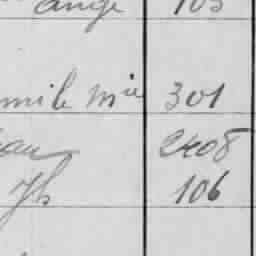 ange 105
mile Mie 301
eau 2408
Jh 106